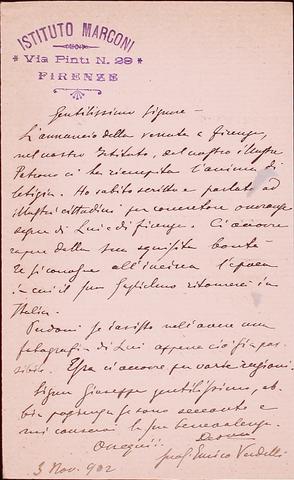 ISTITUTO MARCONI
* Via Pinti N. 29 *
FIRENZE
Gentilissimo Signore -
L'annuncio della venuta a Firenze,
nel nostro Istituto, del nostro illustre
Patrono ci ha riempita l'anima di
letizia. Ho subito scritto e parlato ad
illustri cittadini per concretare onoranze
degne di Lui e di Firenze. Ci occorre
sapere dalla sua squisita bontà
all'incirca l'epoca
in cui il suo Guglielmo ritornerà in
Italia.
Perdoni se insisto nell'avere una
fotografia di Lui appena ciò sia pos-
sibile. Essa ci occorre per varie ragioni.
Signor Giuseppe gentilissimo, ab-
bia pazienza se sono seccante e
mi conservi la sua benevolenza.
Ossequi
prof. Enrico
3 Nov. 902